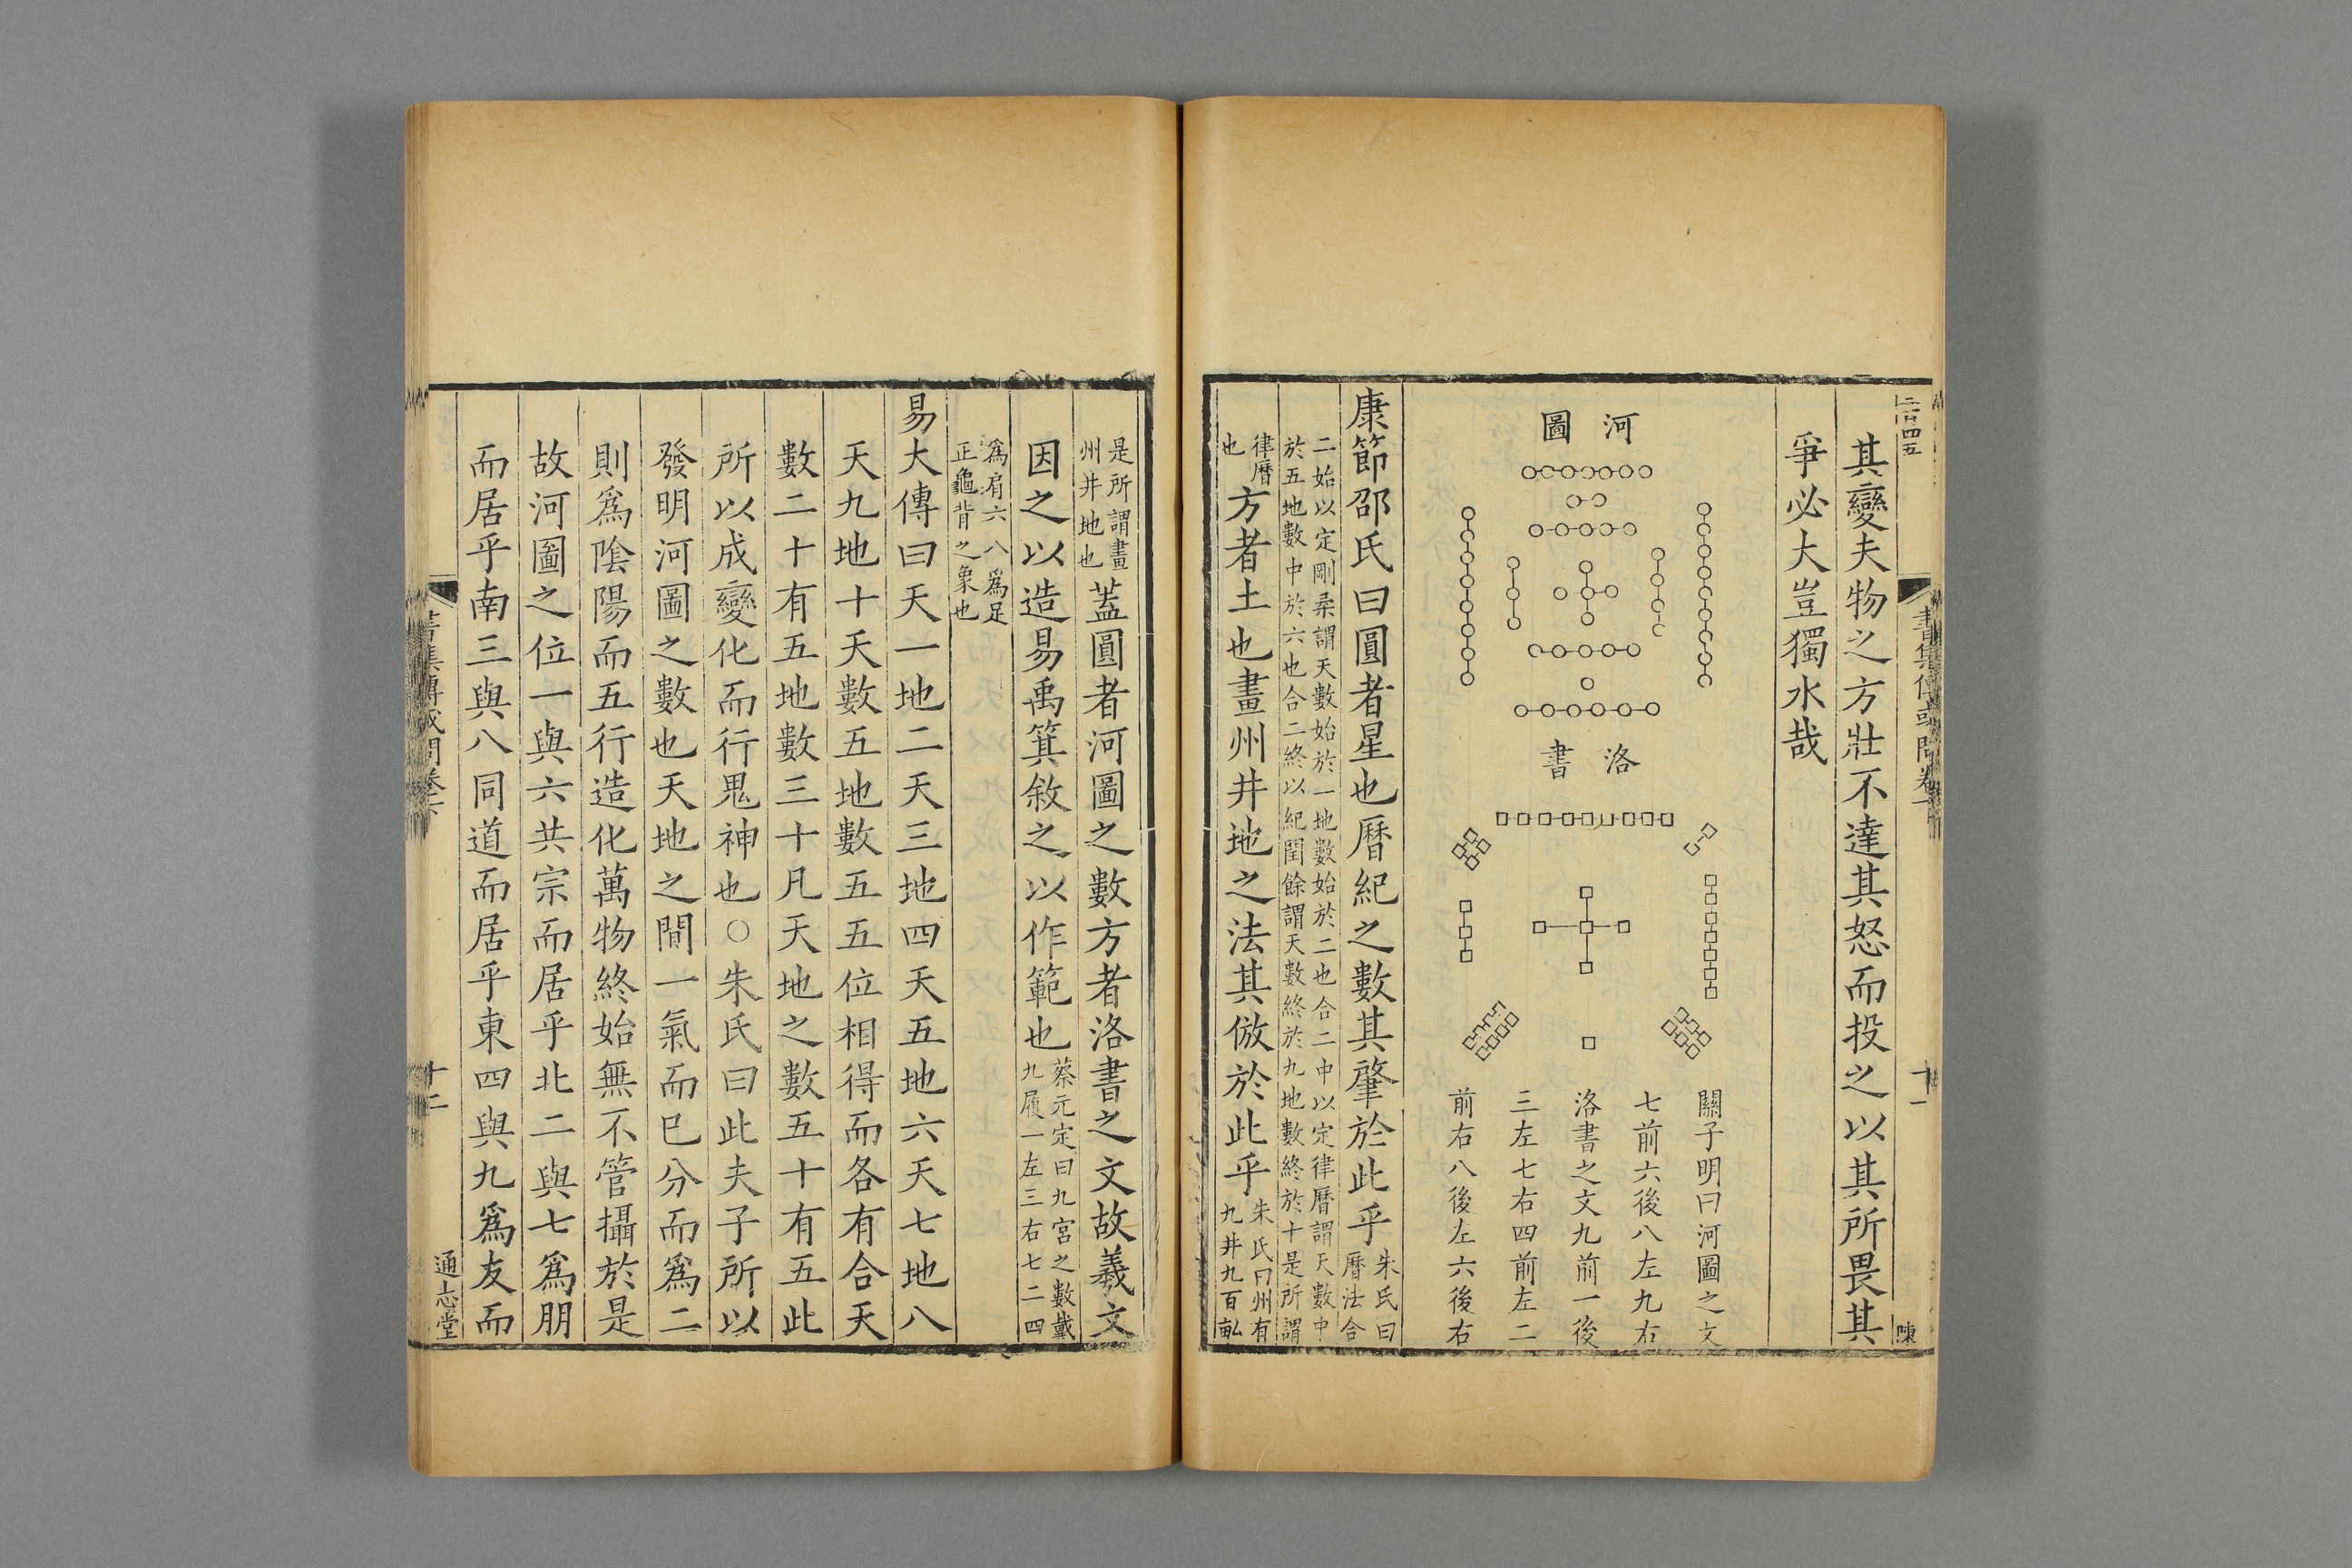 二百四五
陳
其變夫物之方壯不達其怒而投之以其所畏其
爭必大豈獨水哉
河圖
洛書
關子明曰河圖之文
七前六後八左九右
洛書之文九前一後
三左七右四前左二
前右八後左六後右
康節邵氏曰圓者星也曆紀之數其肇於此乎
朱氏曰
曆法合
二始以定剛柔謂天數始於一地數始於二也合二中以定律曆謂天數中
於五地數中於六也合二終以紀閏餘謂天數終於九地數終於十是所謂
律曆
也
方者土也畫州井地之法其倣於此乎
朱氏曰州有
九井九百畝
是所謂畫
州井地也
蓋圓者河圖之數方者洛書之文故羲文
因之以造易禹箕敘之以作範也
蔡元定曰九宮之數戴
九履一左三右七二四
爲肩六八爲足
正龜背之象也
易大傳曰天一地二天三地四天五地六天七地八
天九地十天數五地數五五位相得而各有合天
數二十有五地數三十凡天地之數五十有五此
所以成變化而行鬼神也○朱氏曰此夫子所以
發明河圖之數也天地之間一氣而已分而爲二
則爲陰陽而五行造化萬物終始無不管攝於是
故河圖之位一與六共宗而居乎北二與七爲朋
而居乎南三與八同道而居乎東四與九爲友而
十二
通志堂